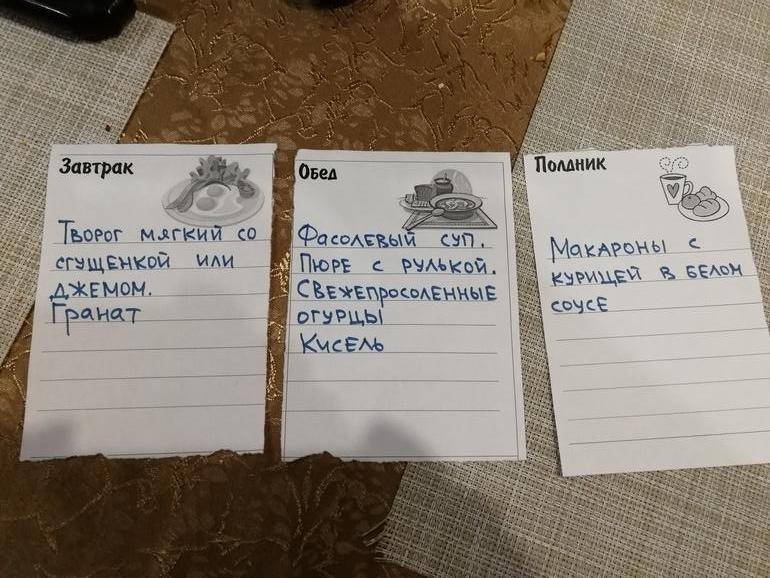 Завтрак
Творог мягкий со
сгущенкой или
джемом.
Гранат
Обед
Фасолевый суп.
Пюре с рулькой.
Свежепросоленные
огурцы
Кисель
Полдник
Макароны с
курицей в белом
соусе